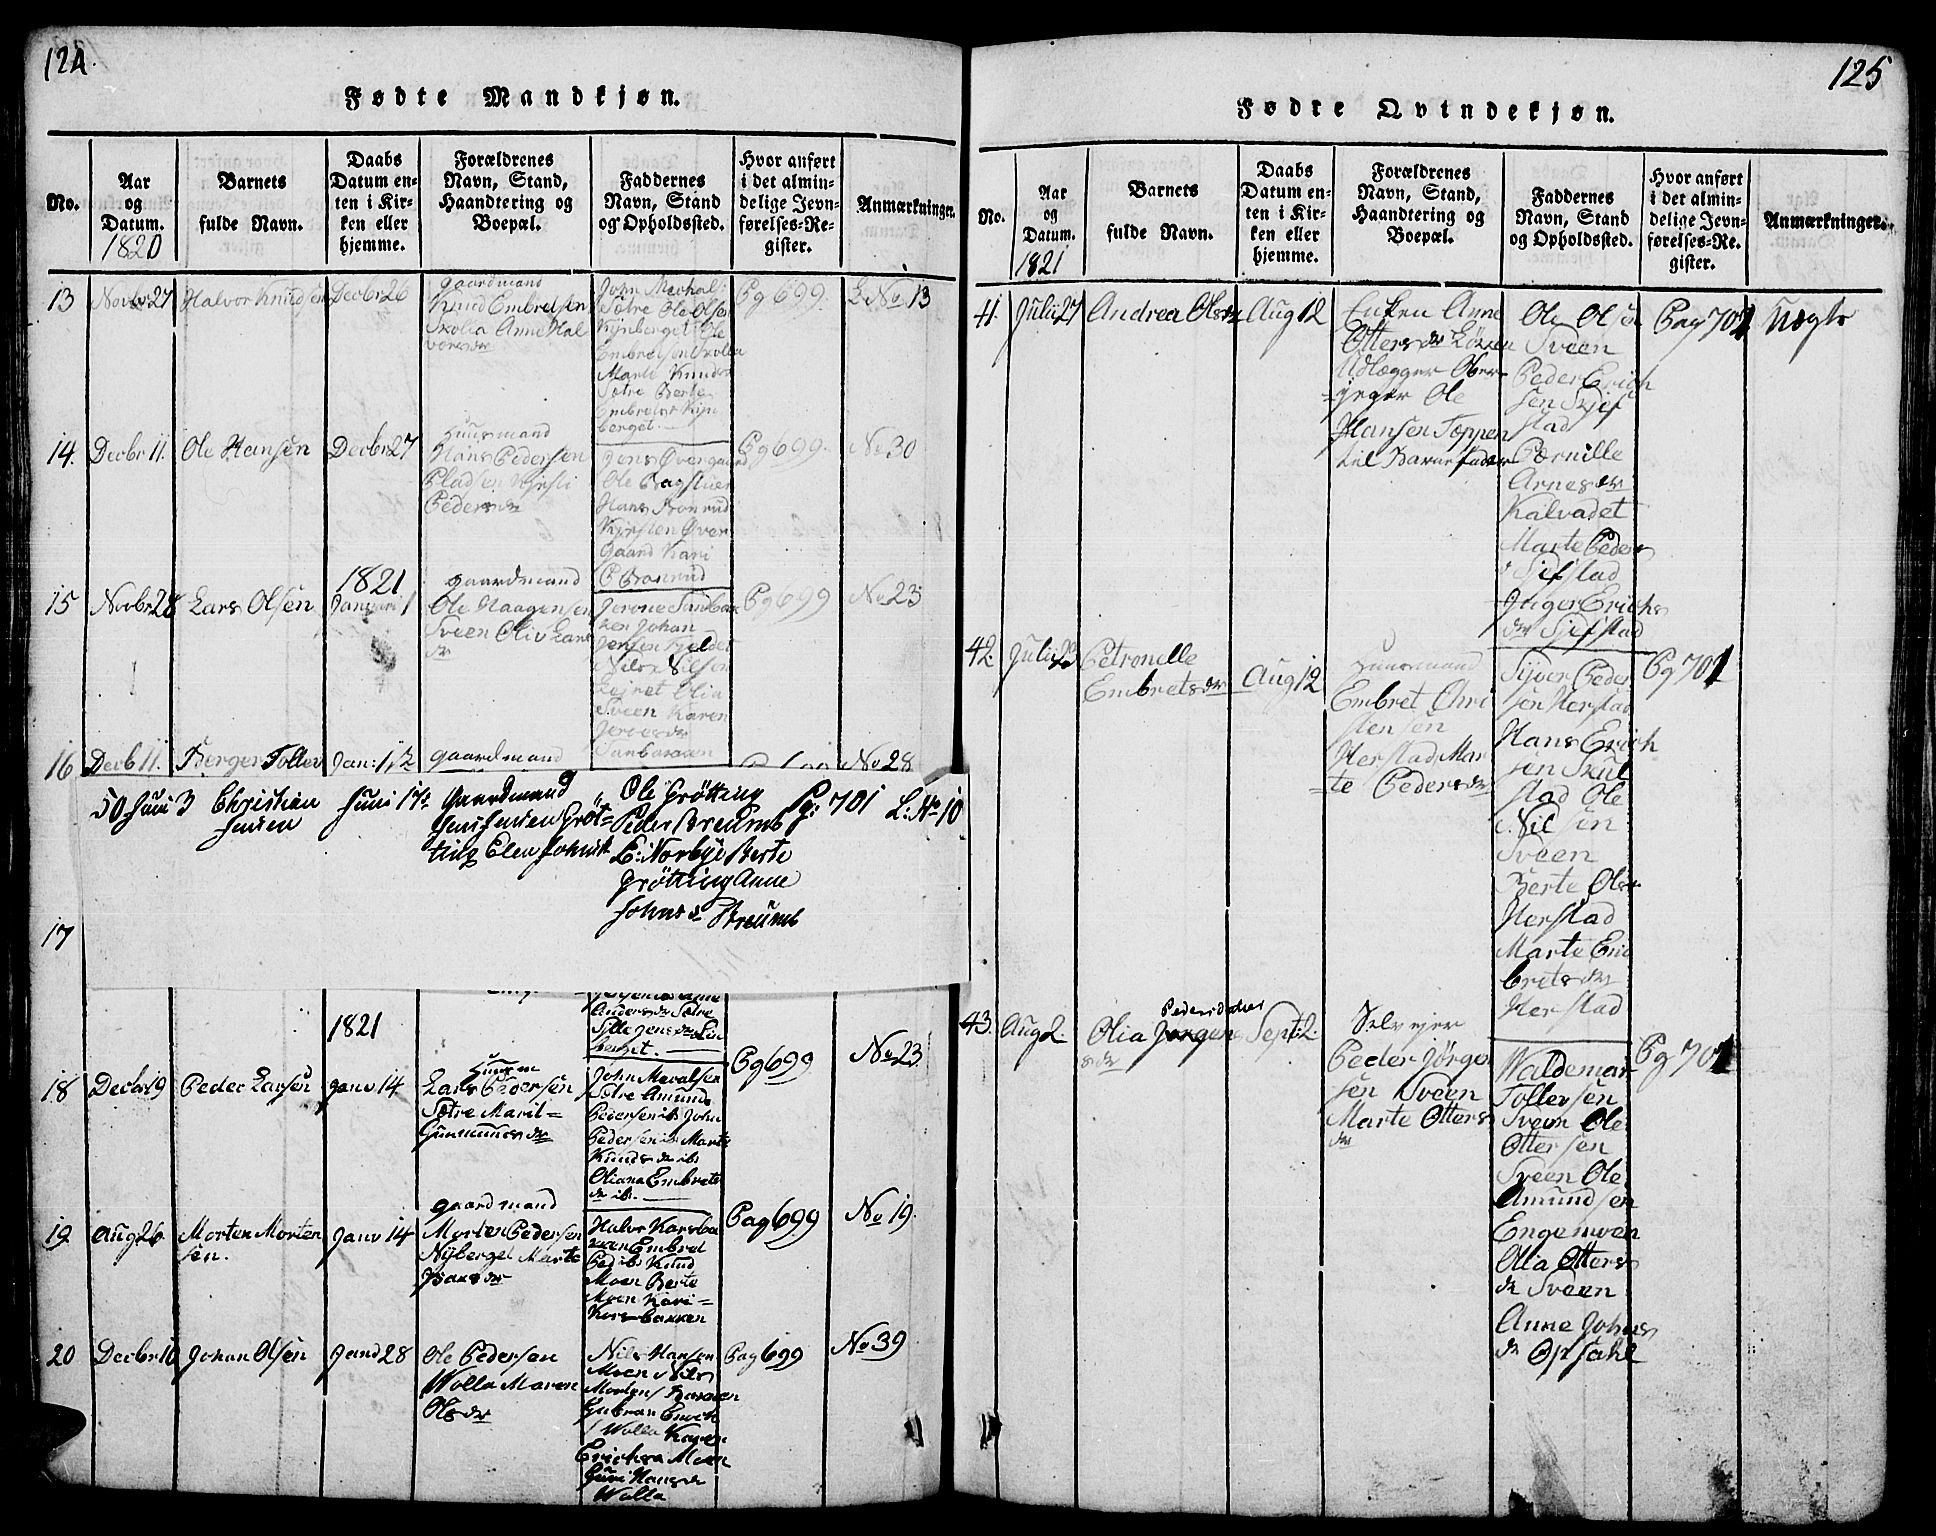 124.
Fødte Mandkjøn.
No.
Aar
og
Datum.
1820
Barnets
fulde Navn.
Daabs
Datum en-
ten i Kir-
ken eller
hjemme.
Forældrenes
Navn, Stand,
Haandtering og
Boepæl.
Faddernes
Navn, Stand
og Opholdssted.
Hvor anført
i det almin-
delige Jevn-
førelses-Re-
gister.
Anmærkninger.
13
Novbr 27
Halvor Knudsen
Decbr 26
gaardmand
Knud Embretsen
Skolla Anne Hal
vorsdr
Sætre Ole Olsen
Nyberget Ole
Embretsen Skolla
Marte Knudsdr
Sætre Berte
Embretsdr Nyb
berget.
Pg 699.
L No 13
14.
Decbr 11.
Ole Hansen
Decbr 27
Huusmand
Hans Pedersen
Pladsen
Pedersdr
Jens Øvergaard
Ole Bagstuen
Hans
Kirsten Øver
gaard Kari
Pg 699.
No 30
15
Novbr 28
Lars Olsen
1821
Januari 1
gaardmand
Ole Haagensen
Sveen Oliv Lars
dr
ken Johan
Jensen
Nils Nilsen
Olia
Sveen Karen
Pg 699
No 23
16
Decb 11.
Bergen Tollev
Jan: 1,2
gaardmand
No 28
50
Juni 3
Christian
Jensen
Juni 17:
Gaardmand
Jens Jensen Grøt-
ting Elen Johnsdr
Ole Grötting
Peder Breumb
E: Norbye Berte
Grötting Anne
Johnsdr Breumb
Pg: 701
L: No 10
17
Anne
Andersdr Sætre
berget.
1821
18
Decbr 19
Peder Larsen
Janv 14
Huusm
Lars Pedersen
Sætre Marit
Gunmunsdr
John
Sætre Amund
Pedersen ib John
Pedersen ib Marte
Knudsdr ib:
Oliana Embrets
dr ib.
Pg 699
No 23
19
Aug 26
Morten Morten
sen.
Janv 14
gaardmand
Morten Pedersen
Nyberget Marte
Isaksdr
Halvor Korsba
kken Embret
Ped ib Knud
Moen Berte
Moen Kari
Korsbakken
Pag 699
No 19.
20
Decbr 10
Johan Olsen
Jand 28
Ole Pedersen
Wolla Maren
Olsdr
Nils Hansen
Moen Nils
Mortens Bakken
Gubran Enok
Wolla Karen
Ericksdr Moen
Guri Hansdr
Wolla
Pag 699
No 39
125
Fødre Qvindekjøn.
No.
Aar
og
Datum.
1821
Barnets
fulde Navn.
Daabs
Datum en-
ten i Kir-
ken eller
hjemme.
Forældrenes
Navn, Stand,
Haandtering og
Boepæl.
Faddernes
Navn, Stand
og Opholdssted.
Hvor anført
i det almin-
delige Jevn-
førelses-Re.
gister.
Anmærkninger.
41.
Julii 27
Andrea Olsdr
Aug 12
Enken Anne
Ottersdr Løkken
Udlægger Ober-
jeger Ole
Hansen Toppen
til Barnefader
Ole Olsen
Sveen
Peder Erich
sen Sjef
stad
Pernille
Arnesdr
Kalvadet
Marte Peders
dr Sjefstad
Inger Erichs
dr Sjefstad
Pag 701
Uægte
42.
Julii 23
Petronelle
Embretsdr
Aug 12
Huusmand
Embret Chri
stensen
Herstad Mar
te Pedersdr
Syver Peder
sen Herstad
Hans Erich
sen Skul
stad Ole
Nilsen
Sveen
Berte Olsdr
Herstad
Marte Em
bretsdr
Herstad
Pg 701
43.
Aug 2.
Pedersdatter
Olia Jørgen
sdr
Sept: 2.
Selvejer
Peder Jørgen
sen Sveen
Marte Otters
dr
Waldemar
Tollevsen
Sveen Ole
Ottersen
Sveen Ole
Amundsen
Engemoen
Olia Otters
dr Sveen
Anne Johns
dr Opsahl
Pg 701